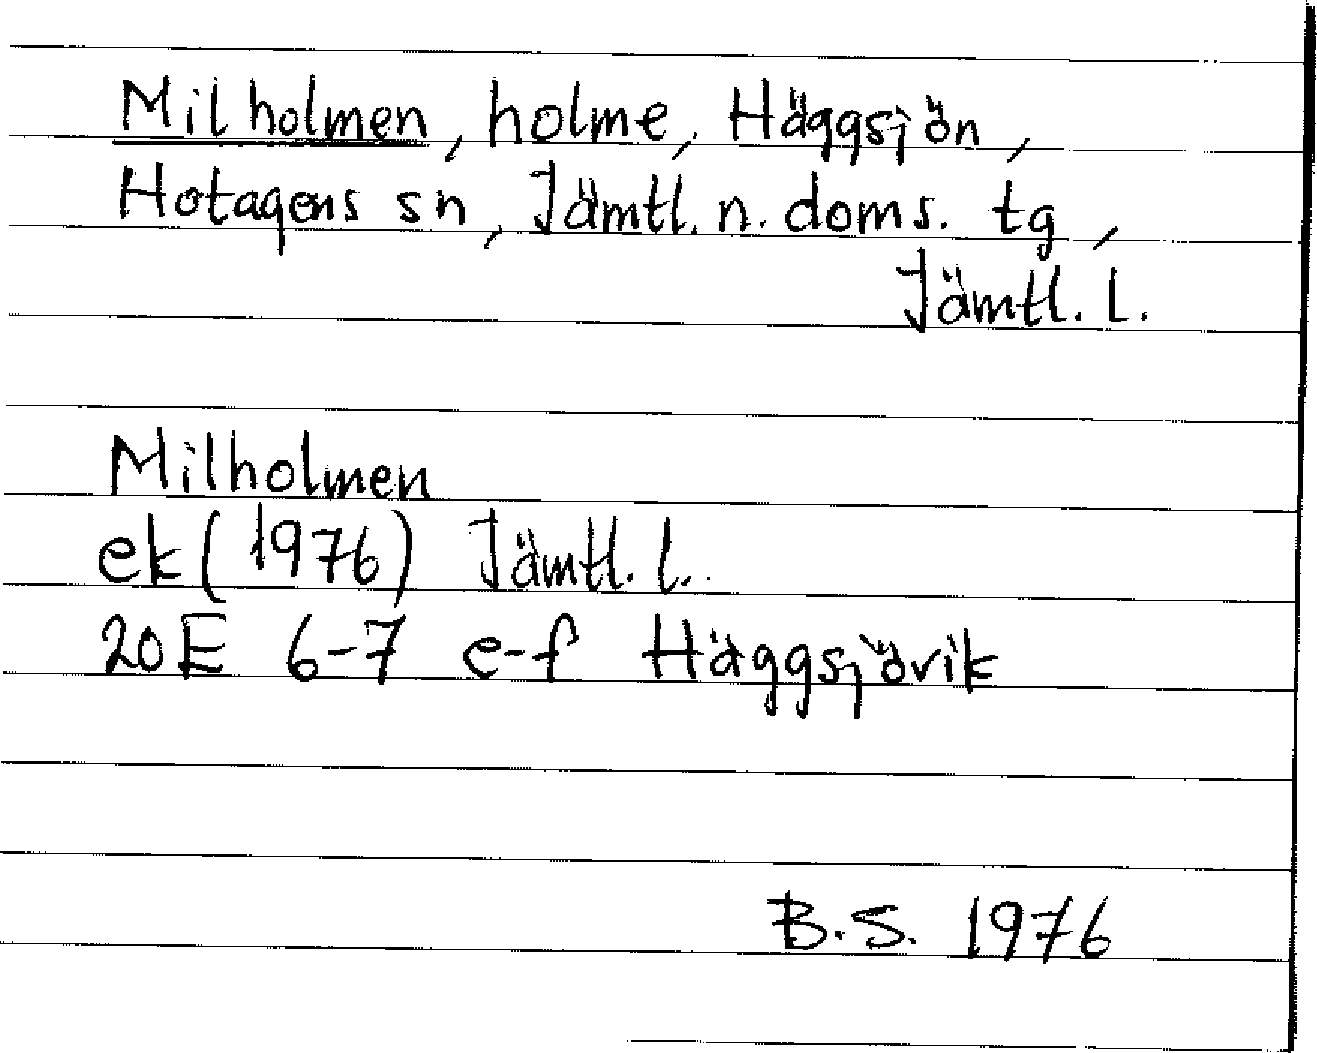 Milholmen, holme, Häggsjön,
Hotagens sn, Jämtl. n. doms. tg,
Jämtl. l.
Milholmen
ek (1976) Jämtl. l.
20E 6-7 e-f Häggsjövik
B.S. 1976